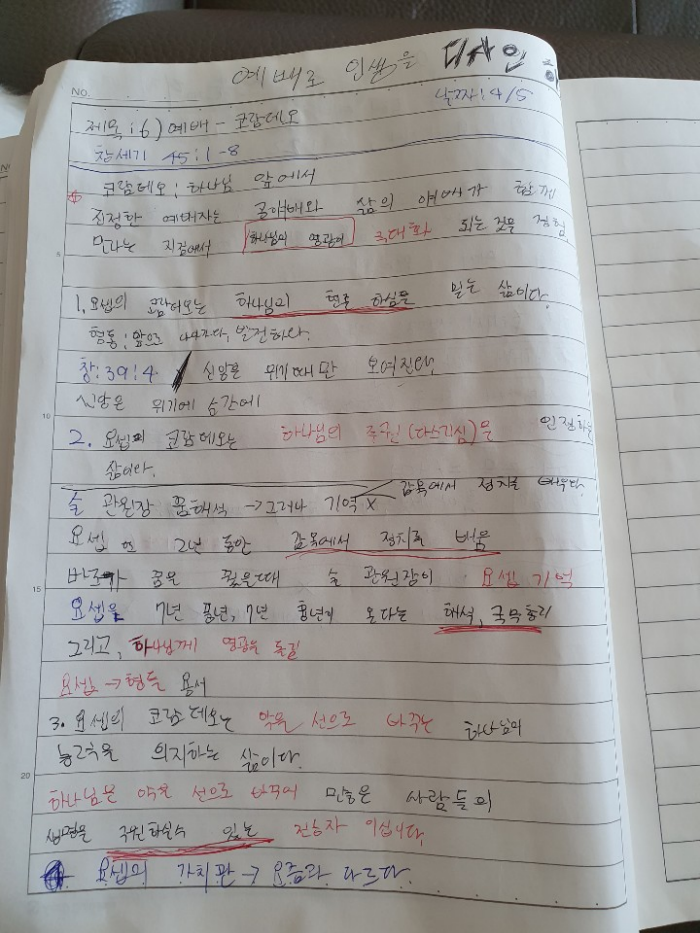 예배로 인생을 디자인
No.
날짜: 4/5
제목: 6) 예배 - 코람데오
창세기 45:1-8
코람데오: 하나님 앞에서
진정한 예배자는 공예배와 삶의 예배가 함께
만나는 지점에서 하나님의 영광이 극대화 되는 것을 경험
5
1. 요셉의 코람데오는 하나님의 형통하심을 믿는 삶이다.
형통: 앞으로 나아가다, 발전하다.
창: 39:4 신앙은 위기때만 보여진다.
신앙은 위기에 순간에
10
2. 요셉의 코람데오는 하나님의 주권(다스리심)을 인정하는
삶이다.
감옥에서 정치를 배우다.
술 관원장 꿈해석 → 그러나 기억 x
요셉은 2년 동안 감옥에서 정치를 배움
바로가 꿈을 꿨을때 술 관원장이 요셉 기억
15
요셉은 7년 풍년, 7년 흉년이 온다는 해석, 국무총리
그리고, 하나님께 영광을 돌림
요셉 → 형들 용서
3. 요셉의 코람데오는 악을 선으로 바꾸는 하나님의
능력을 의지하는 삶이다.
20
하나님은 악을 선으로 바꾸어 많은 사람들의
생명을 구원하실수 있는 전능자 이십니다.
요셉의 가치관 → 요즘과 다르다.